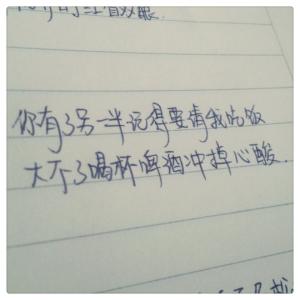 你有了另一半记得要请我吃饭
大不了喝杯啤酒冲掉心酸.